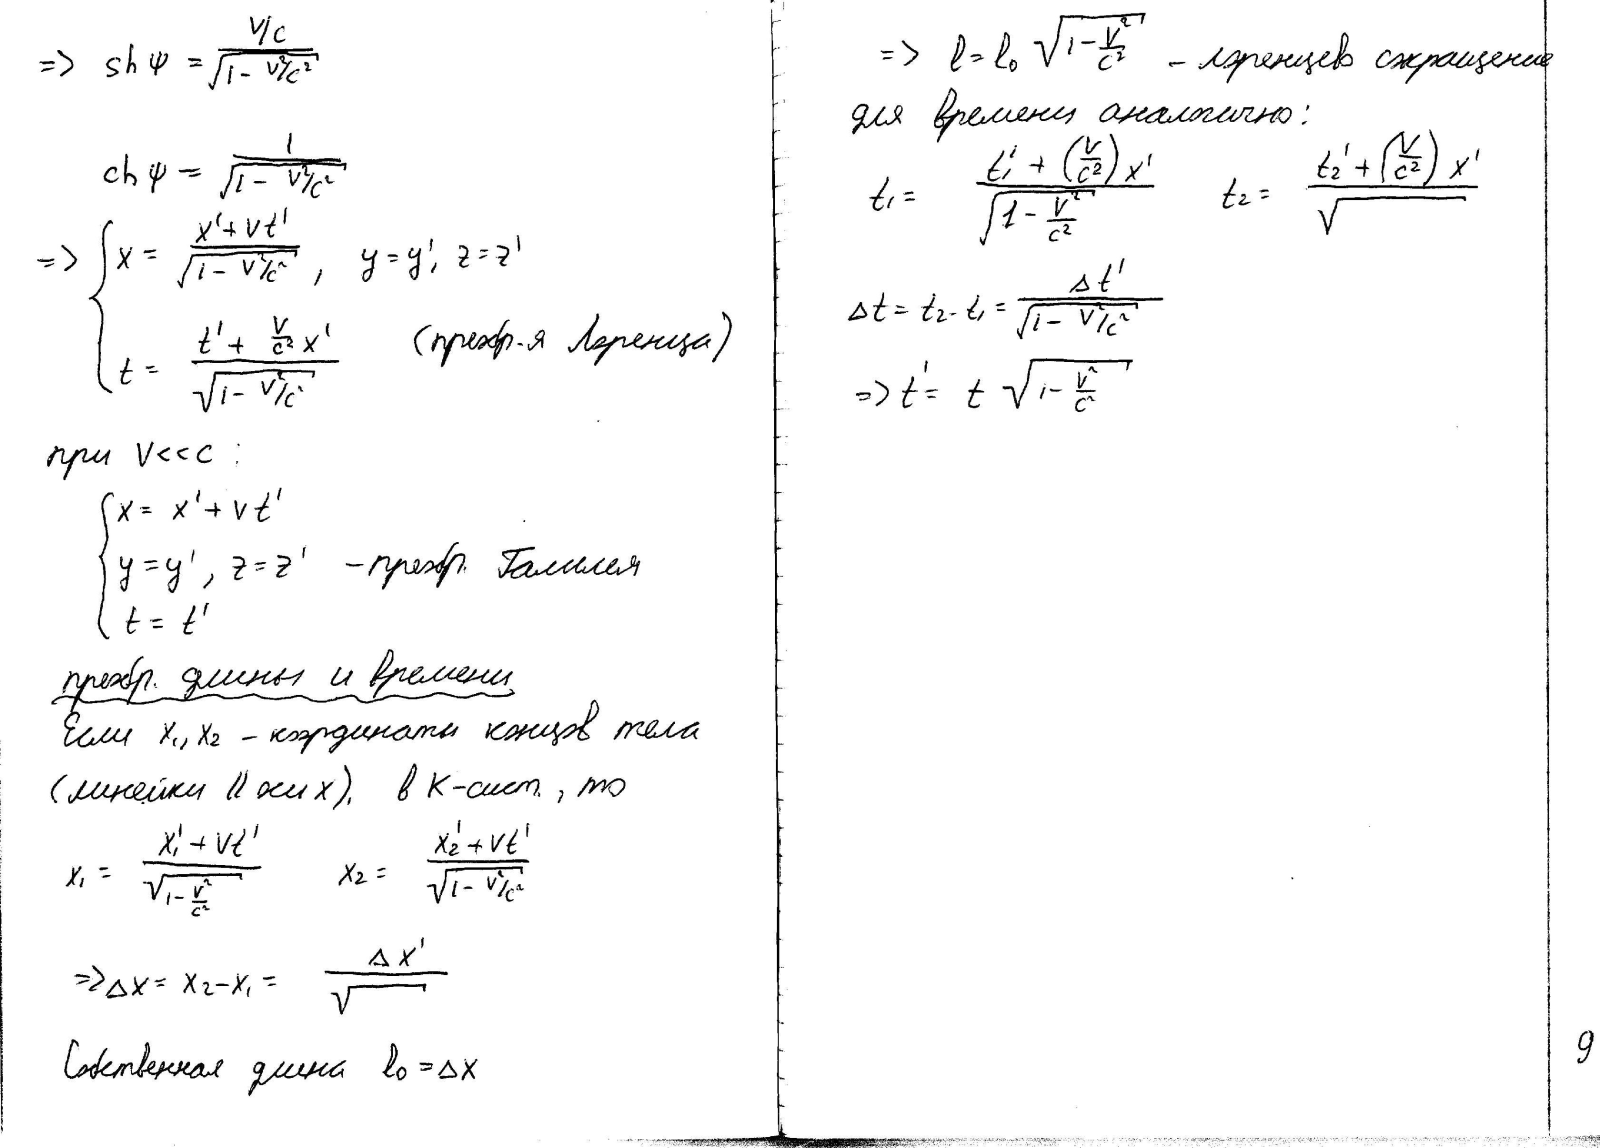 => sh ψ = (V/c) / √(1 - V²/c²)
ch ψ = 1 / √(1 - V²/c²)
=> { x = (x' + Vt') / √(1 - V²/c²), y = y', z = z'
t = (t' + (V/c²) x') / √(1 - V²/c²) (преобр-я Лоренца)
при V<<c :
{ x = x' + Vt'
y = y', z = z' - преобр. Галилея
t = t'
преобр. длины и времени
Если x₁, x₂ - координаты концов тела
(линейки || оси x), в K-сист., то
x₁ = (x₁' + Vt') / √(1 - V²/c²) x₂ = (x₂' + Vt') / √(1 - V²/c²)
=> Δx = x₂ - x₁ = Δx' / √
Собственная длина l₀ = Δx
=> l = l₀ √(1 - V²/c²) - лоренцево сокращение
для времени аналогично:
t₁ = (t₁' + (V/c²) x') / √(1 - V²/c²) t₂ = (t₂' + (V/c²) x') / √
Δt = t₂ - t₁ = Δt' / √(1 - V²/c²)
=> t' = t √(1 - V²/c²)
9